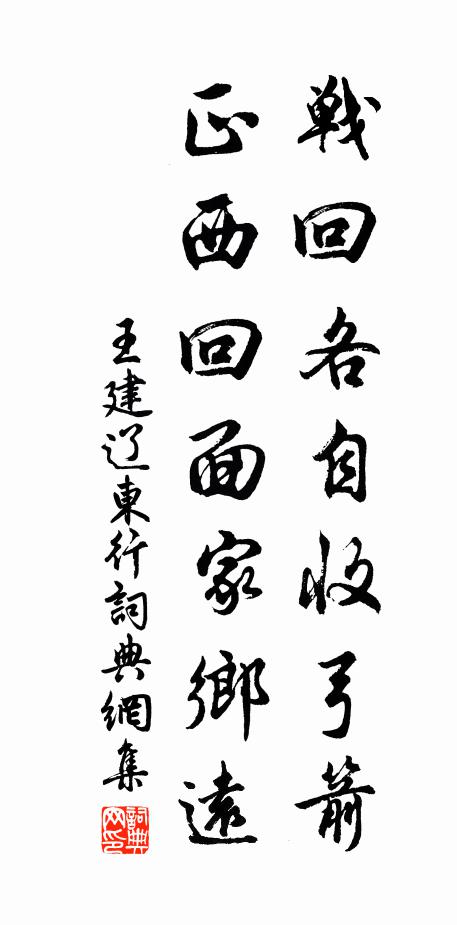 戰回各自收弓箭
正西回面家鄉遠
王建辽東行詞典網集
詞典網印